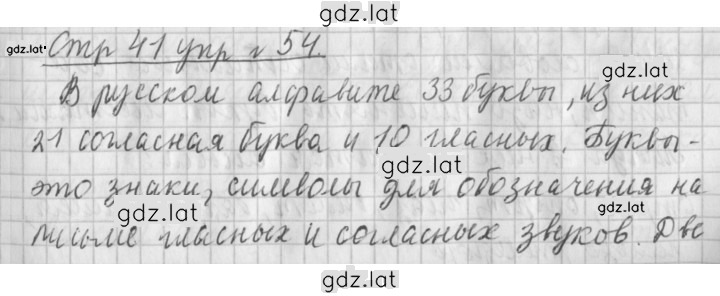 gdz.lat
gdz.lat Стр 41 упр г 54.
gdz.lat
В русском алфавите 33 буквы, из них
21 согласная буква и 10 гласных. Буквы-
gdz.lat
это знаки, символы для обозначения на
gdz.lat gdz.lat
письме гласных и согласных звуков. Две
gdz.lat